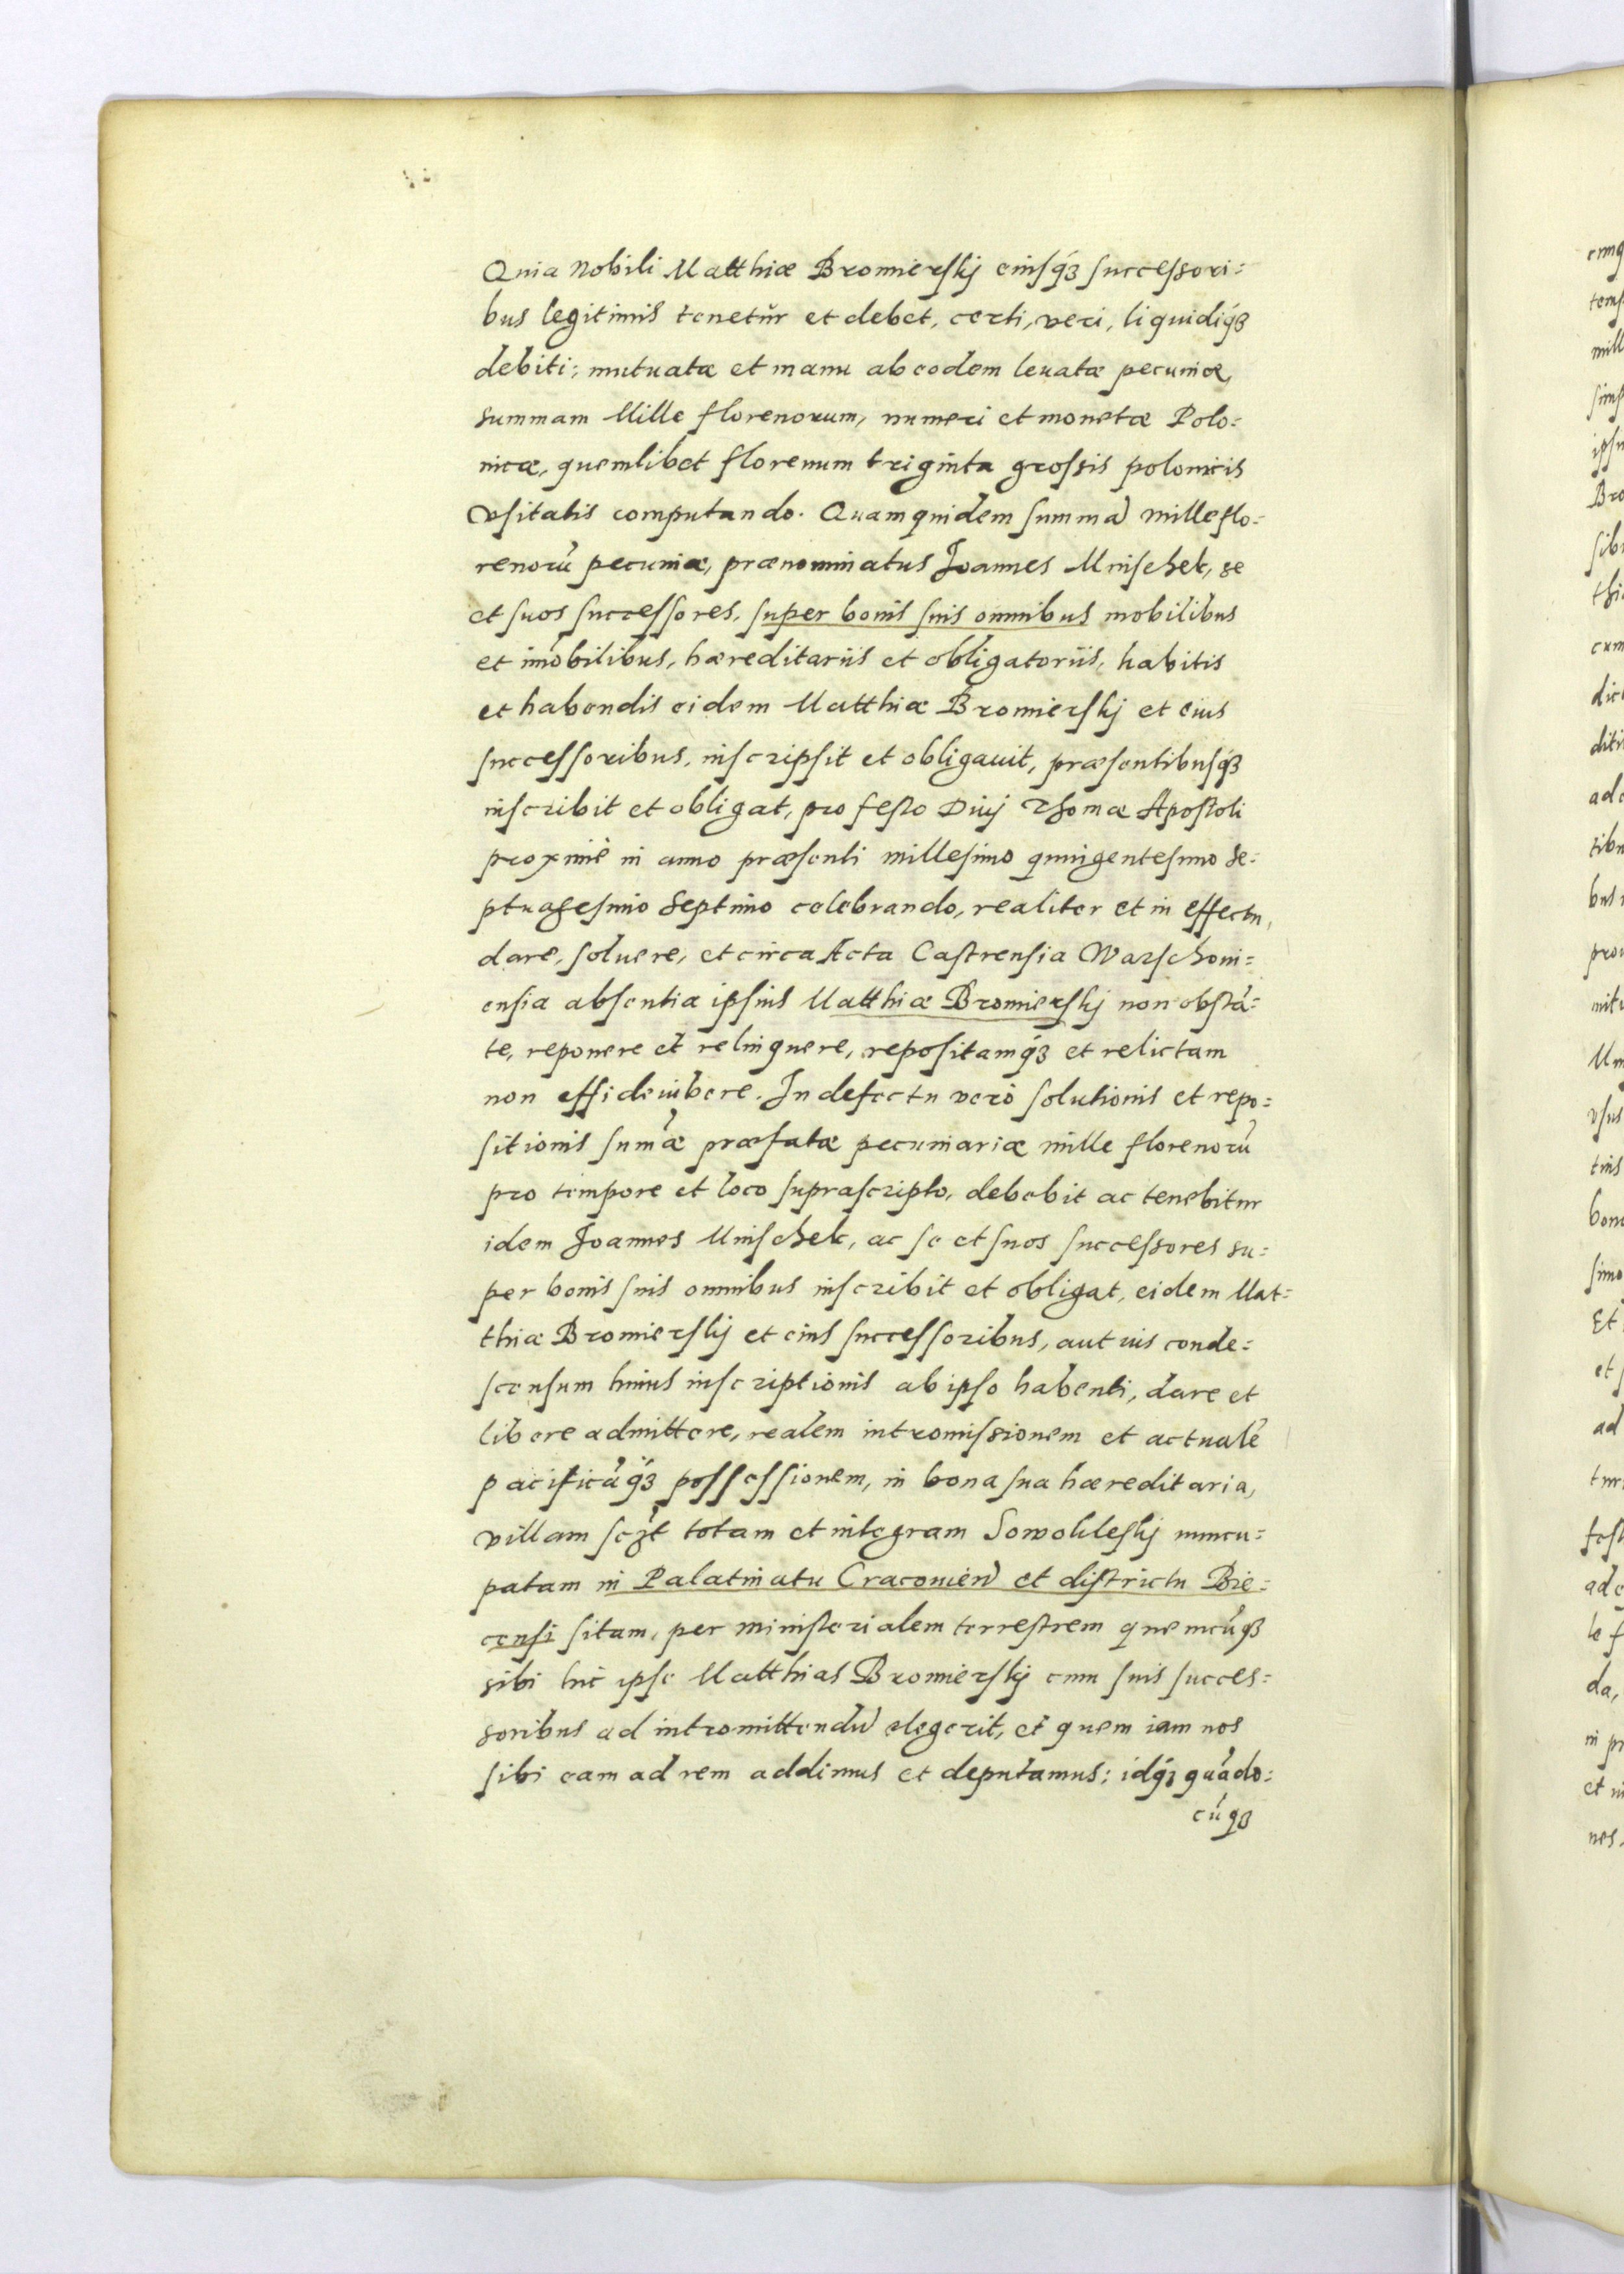 Quia Nobili Matthiæ Bromierskj eiusq́ꝫ successori=
bus legitimis tenetur et debet, certi, veri, liquidiq́ꝫ
debiti; mutuatæ et manu ab eodem leuatæ pecuniæ,
summam Mille florenorum, numeri et monetæ Polo=
nicæ, quemlibet florenum triginta grossis polonicis
Vsitatis computando. Quam quidem summã mille flo=
renorũ pecuniæ, prænominatus Joannes Mnischek, se
et suos successores, super bonis suis omnibus mobilibus
et imõbilibus, hæreditariis et obligatoriis, habitis
et habendis eidem Matthiæ Bromierskj et eius
successoribus, inscripsit et obligauit, præsentibusq́ꝫ
inscribit et obligat, pro festo Diuj Thomæ Apostoli
proximè in anno præsenti millesimo quingentesimo se=
ptuagesimo septimo celebrando, realiter et in effectu,
dare, soluere, et circa Acta Castrensia Warschoui=
ensia absentia ipsius Matthiæ Bromierskj non obstã=
te, reponere et relinquere, repositamq́ꝫ et relictam
non effideiubere. In defectu verò solutionis et repo=
sitionis sum̃æ præfatæ pecuniariæ mille florenorũ
pro tempore et loco suprascripto, debebit ac tenebitur
idem Joannes Mnischek, ac se et suos successores su=
per bonis suis omnibus inscribit et obligat, eidem Mat=
thiæ Bromierskj et eius successoribus, aut ius conde=
scensum huius inscriptionis ab ipso habenti, dare et
libere admittere, realem intromissionem et actualẽ
pacificãq́ꝫ possessionem, in bona sua hæreditaria,
villam scꝫt totam et integram Sowokleskj nuncu=
patam in Palatinatu Cracovieñ et districtu Bie=
censi sitam, per ministerialem terrestrem quemcũqꝫ
sibi hic ipse Matthias Bromierskj cum suis succes=
soribus ad intromittendũ elegerit, et quem iam nos
sibi eam ad rem addimus et deputamus; idq́ꝫ quãdo=
cũqꝫ